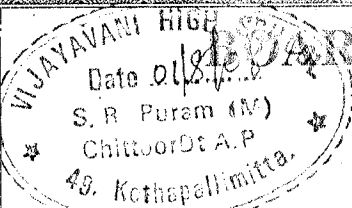 VIJAYAVANI HIGH
BOAR
Date 01/8/
S. R. Puram (M)
Chittoor Dt A.P
49. Kothapallimitta.